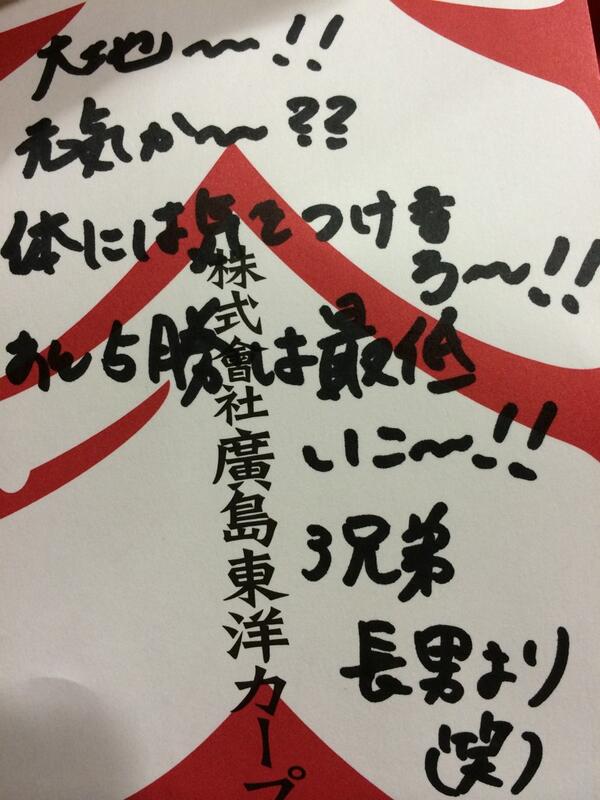 大地〜!!
元気か〜??
体には気をつけき
ろ〜!!
あと5勝は最低
いこ〜!!
3兄弟
長男より
(笑)
株式會社廣島東洋カープ